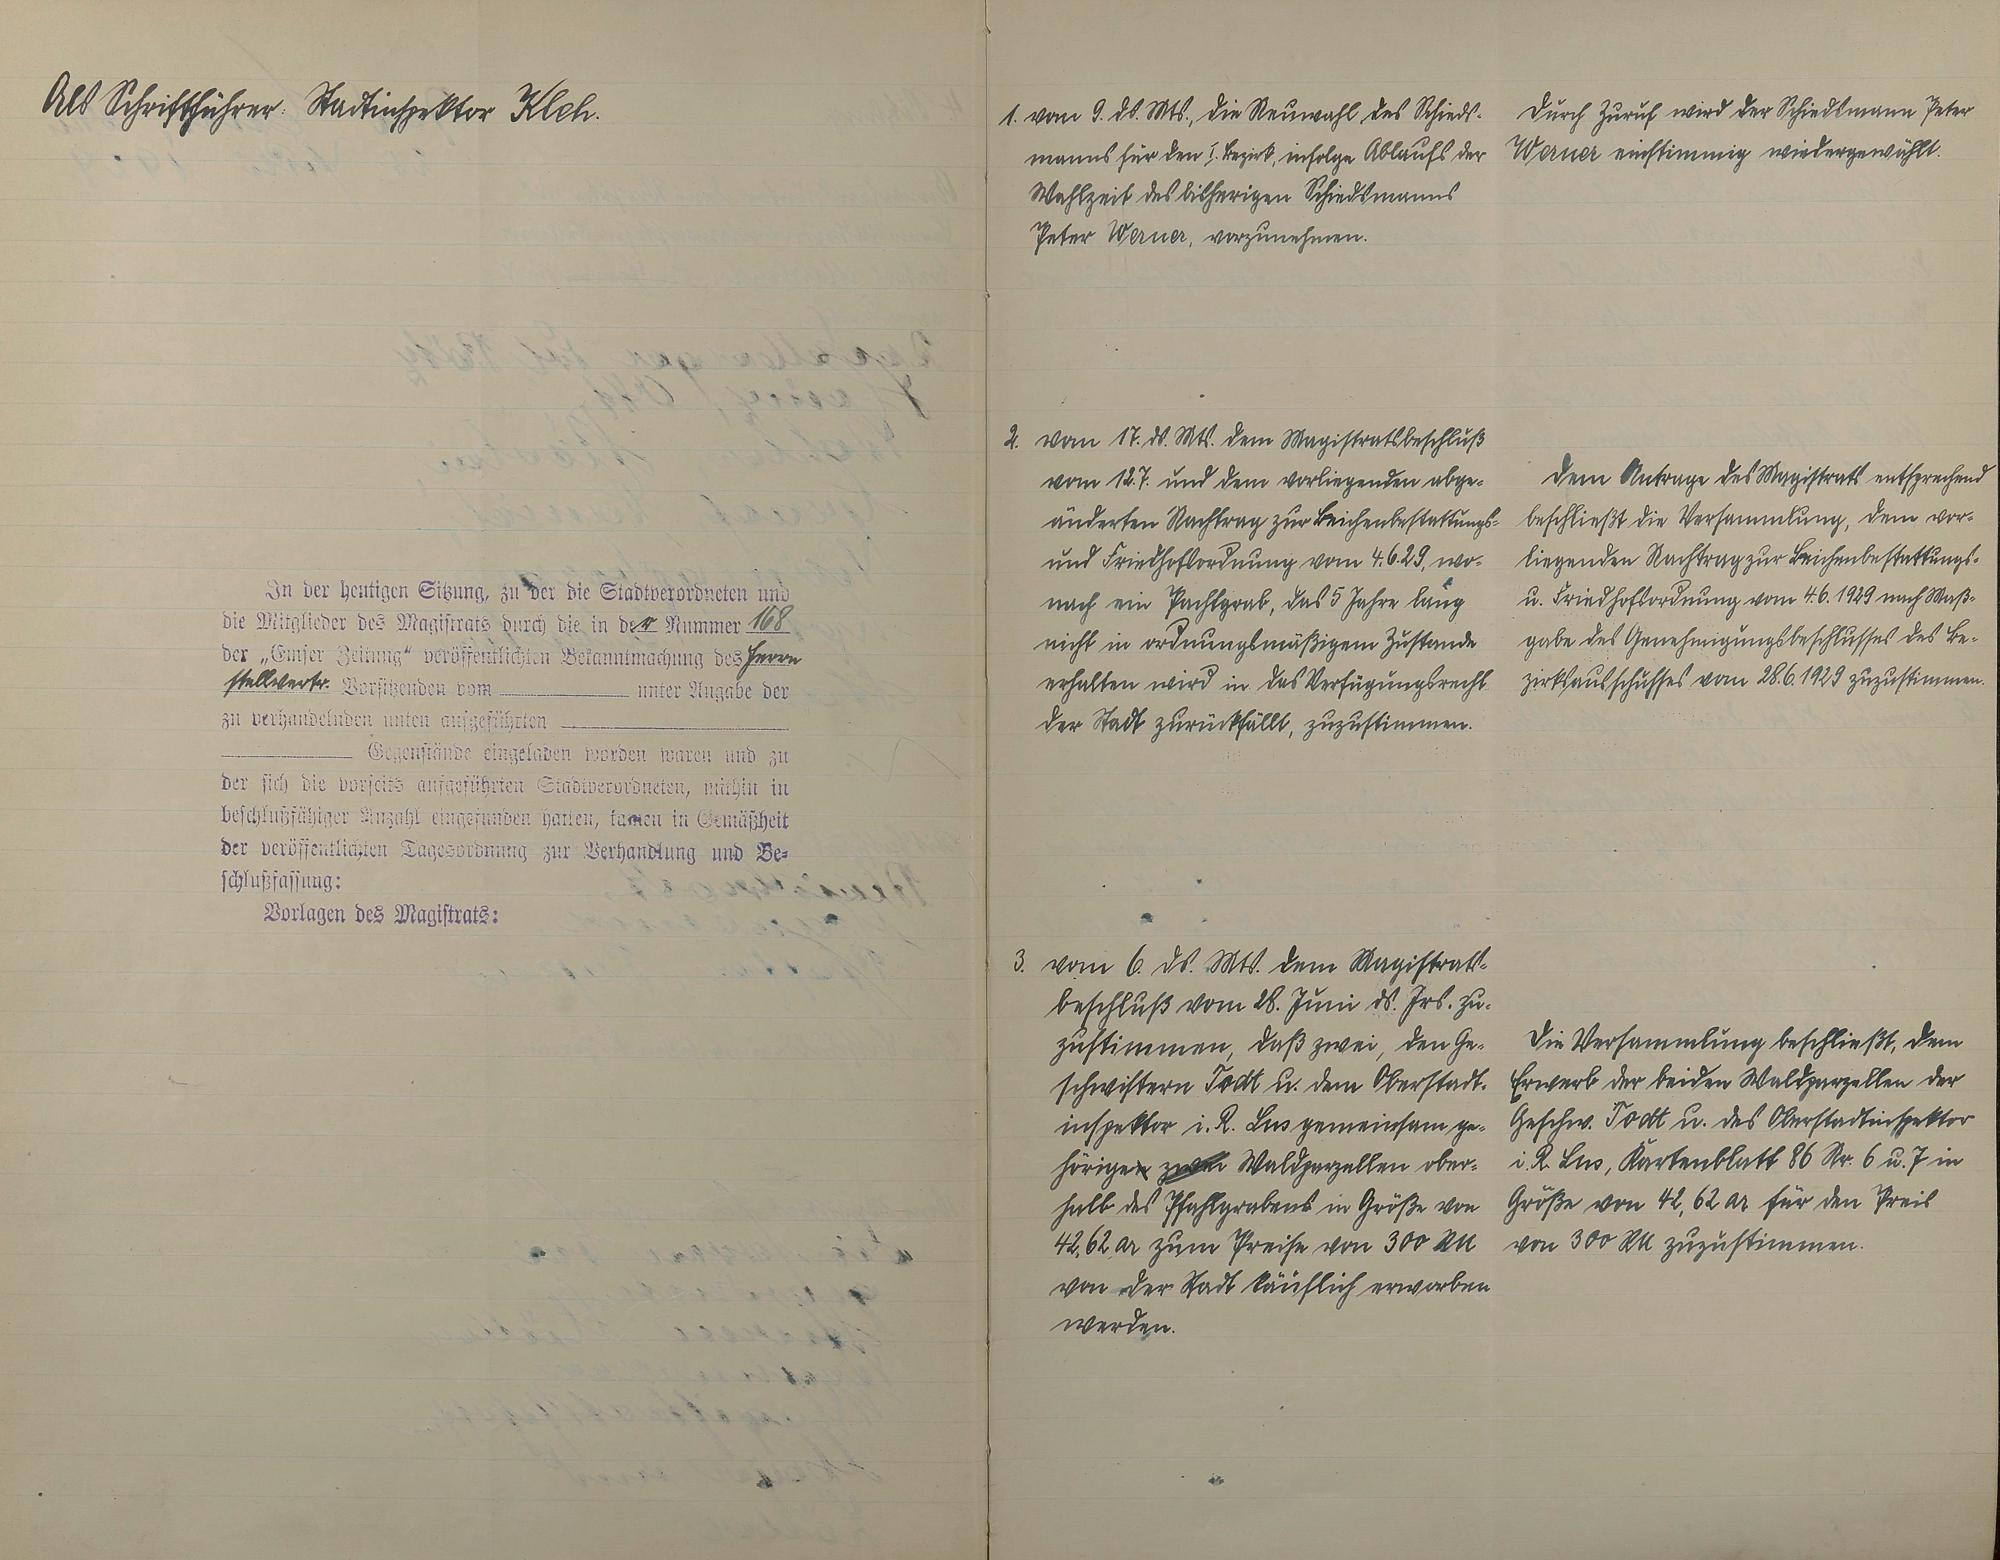 Als Schriftführer: Stadtinspektor Klch.
In der heutigen Sitzung, zu der die Stadtverordneten und
die Mitglieder des Magistrats durch die in der Nummer 168
der „Emser Zeitung“ veröffentlichten Bekanntmachung des Herrn
stellvertr. Vorsitzenden vom unter Angabe der
zu verhandelnden unten aufgeführten
Gegenstände eingeladen worden waren und zu
der sich die vorseits aufgeführten Stadtverordneten, mithin in
beschlußfähiger Anzahl eingefunden hatten, kamen in Gemäßheit
der veröffentlichten Tagesordnung zur Verhandlung und Be-
schlußfassung:
Vorlagen des Magistrats:
1. vom 9. ds. Mts., die Neuwahl des Schieds-
manns für den I. Bezirk, infolge Ablaufs der
Wahlzeit des bisherigen Schiedsmanns
Peter Werner, vorzunehmen.
Durch Zuruf wird der Schiedsmann Peter
Werner einstimmig wiedergewählt.
2. vom 17. ds. Mts. dem Magistratsbeschluß
vom 12.7. und dem vorliegenden abge-
änderten Nachtrag zur Leichenbestattungs-
und Friedhofsordnung vom 4.6.29, wo-
nach ein Pachtgrab, das 5 Jahre lang
nicht in ordnungsmäßigem Zustande
erhalten wird in das Verfügungsrecht
der Stadt zurückfällt, zuzustimmen.
Dem Antrage des Magistrats entsprechend
beschließt die Versammlung, dem vor-
liegenden Nachtrag zur Leichenbestattungs-
u. Friedhofsordnung vom 4.6.1929 nach Maß-
gabe des Genehmigungsbeschlusses des Be-
zirksausschusses vom 28.6.1929 zuzustimmen.
3. vom 6. ds. Mts. dem Magistrats-
beschluß vom 28. Juni ds. Jrs. zu-
zustimmen, daß zwei, den Ge-
schwistern Todt u. dem Oberstadt-
inspektor i. R. Lus gemeinsam ge-
hörige Waldparzellen ober-
halb des Pfahlgrabens in Größe von
42,62 ar zum Preise von 300 RM
von der Stadt käuflich erworben
werden.
Die Versammlung beschließt, dem
Erwerb der beiden Waldparzellen der
Geschw. Todt u. des Oberstadtinspektor
i. R. Lus, Kartenblatt 86 Nr. 6 u. 7 in
Größe von 42,62 ar für den Preis
von 300 RM zuzustimmen.